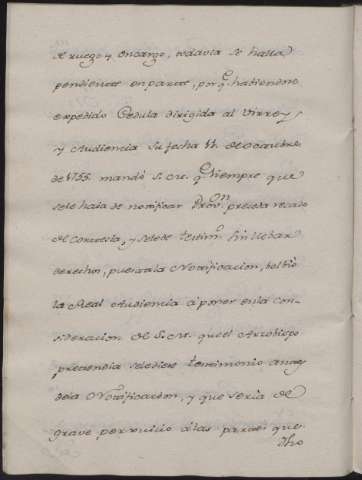 de ruego y encargo, todavia se halla
pendiente en parte, por q.e habiendose
expedido Cedula dirigida al Virrey,
y Audiencia su fecha 11. de Octubre
de 1755. mandó S. M. q.e siempre que
se le haia de notificar Prov.on preceda recado
de Cortesia, y se le de testim.o sin llebar
derechos, puesta la Notificacion, bolbió
la Real Audiencia á poner en la con-
sideracion de S. M. que el Arzobispo
pretendia se le diese testimonio antes
de la Notificacion, y que seria de
grave perxuicio á las partes que
dho